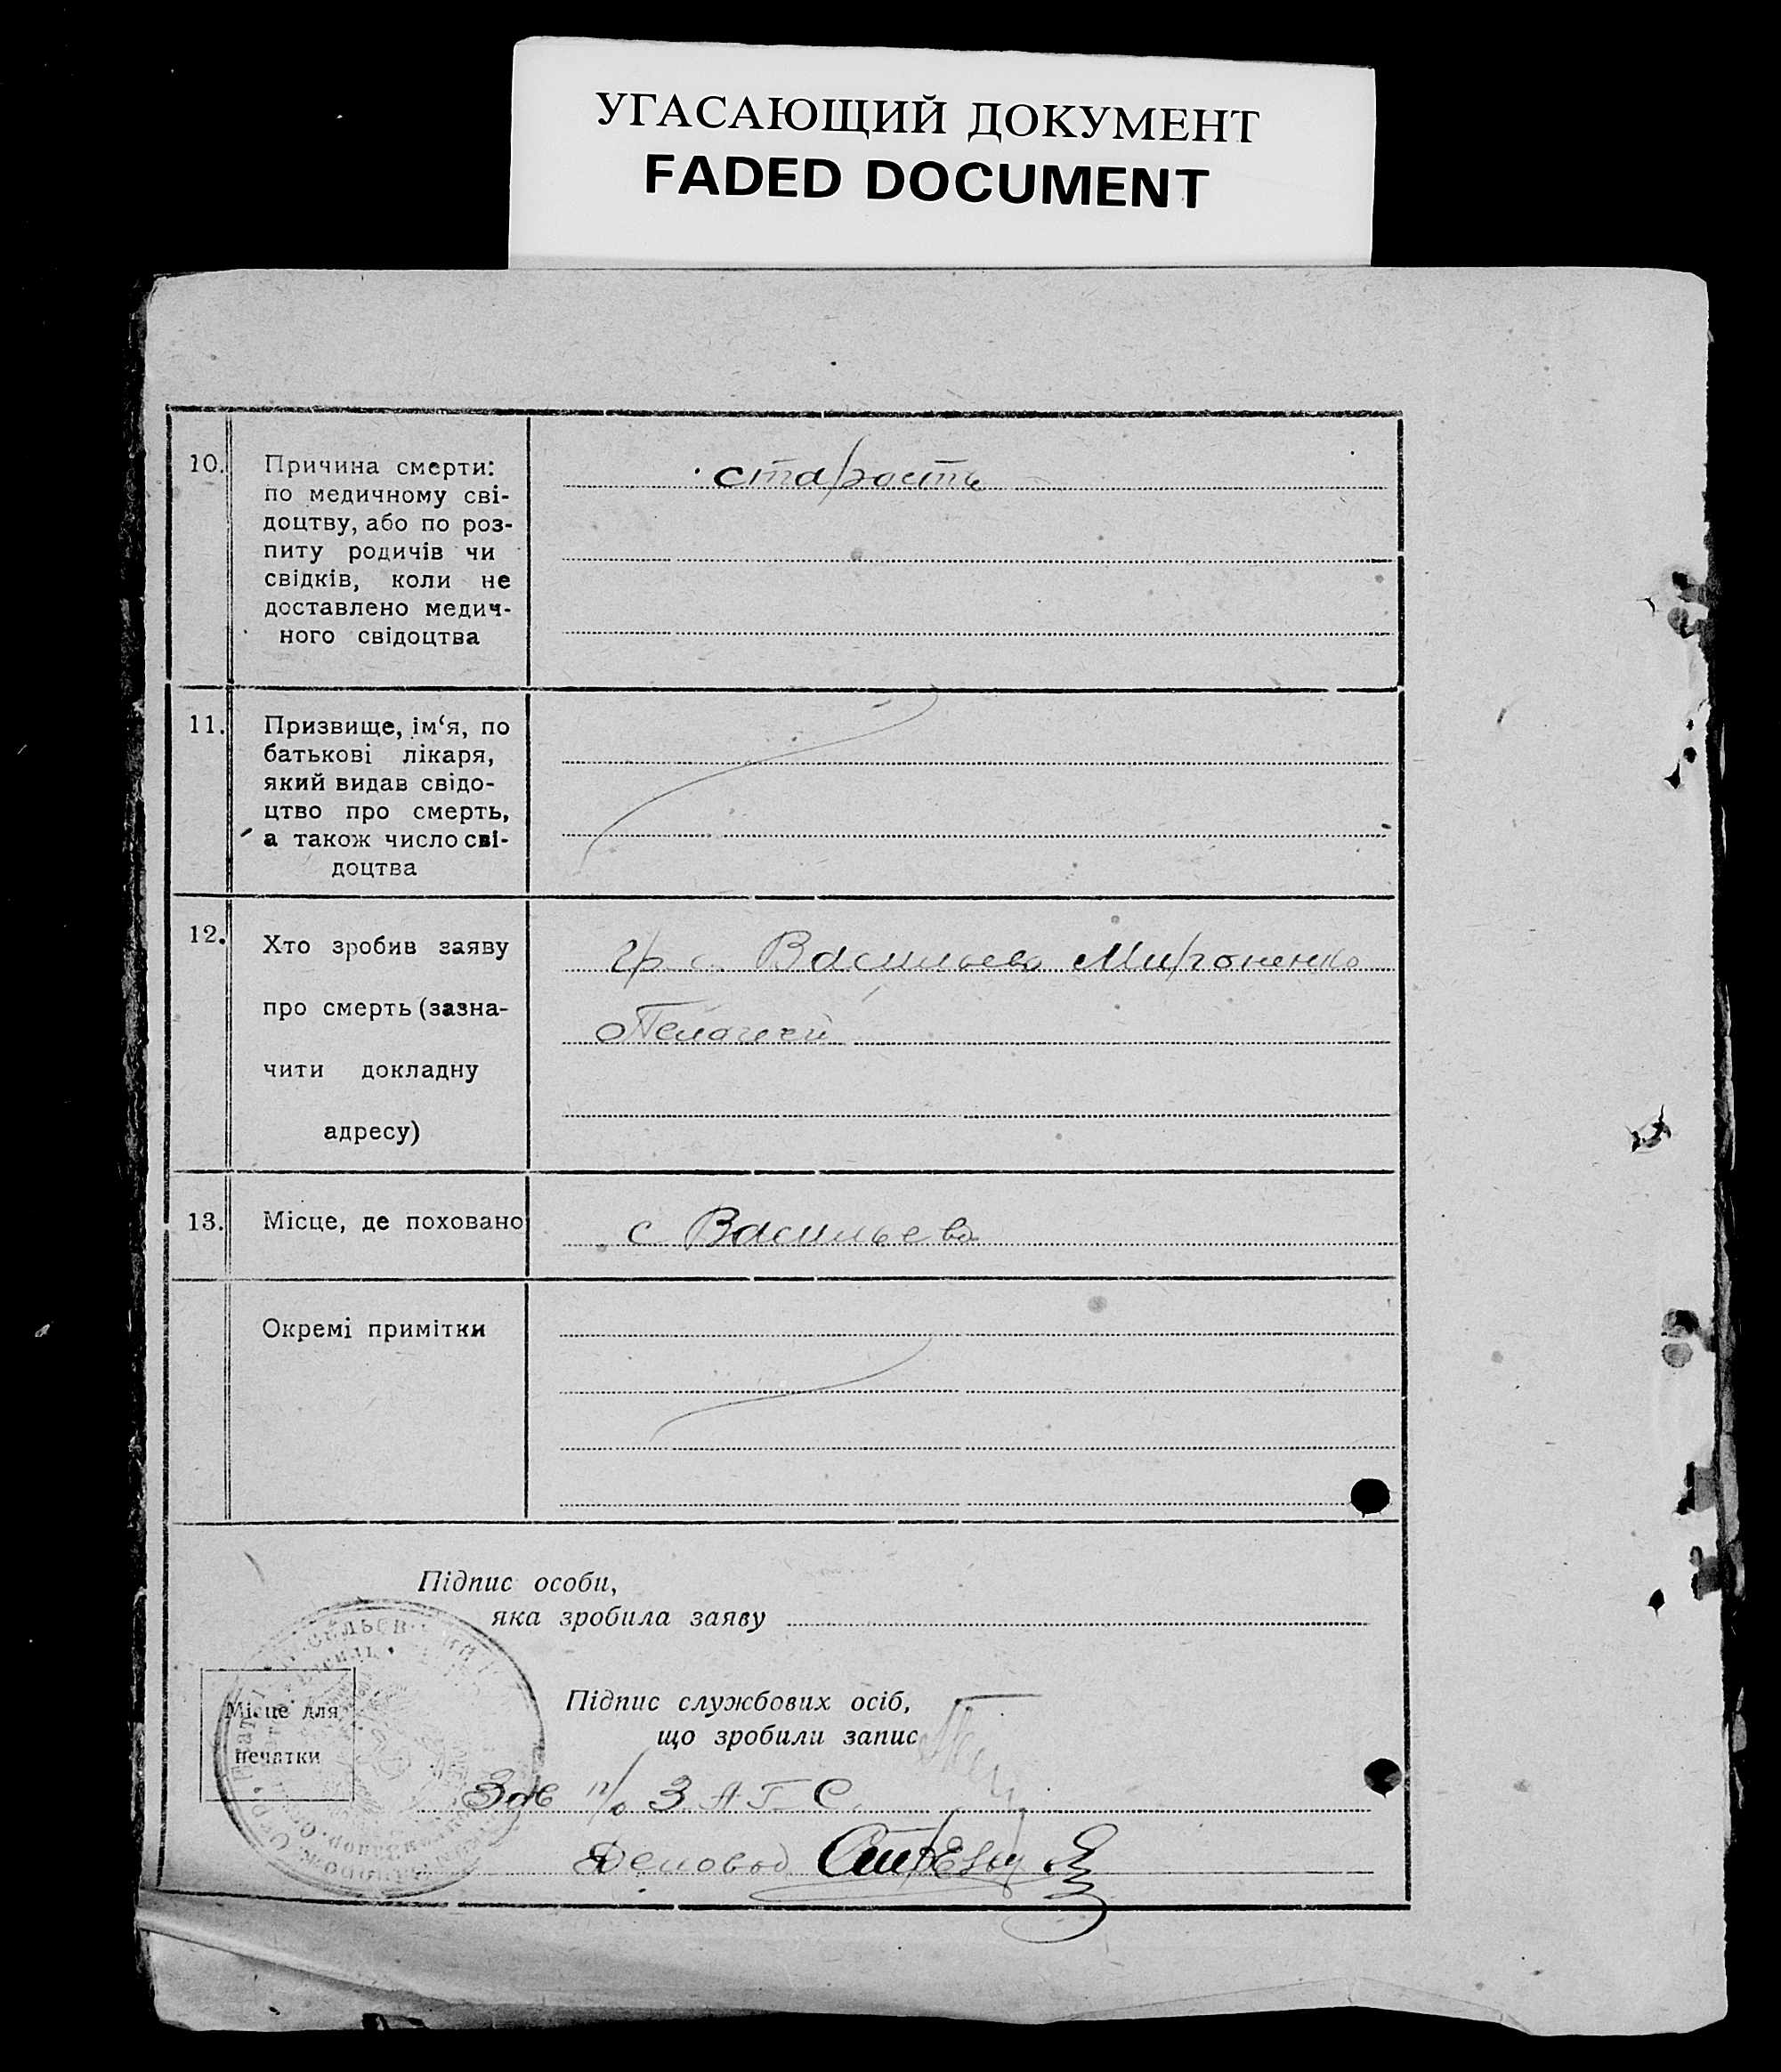 УГАСАЮЩИЙ ДОКУМЕНТ
FADED DOCUMENT
10.
Причина смерти:
по медичному сві-
доцтву, або по роз-
питу родичів чи
свідків, коли не
доставлено медич-
ного свідоцтва
старость
11.
Призвище, ім‘я, по
батькові лікаря,
який видав свідо-
цтво про смерть,
а також число сві-
доцтва
12.
Хто зробив заяву
про смерть (зазна-
чити докладну
адресу)
гр. с. Васильево Мироненко
Пелагеей
13.
Місце, де поховано
с Васильево
Окремі примітки
Підпис особи,
яка зробила заяву
Місце для
печатки
Підпис службових осіб,
що зробили запис
Зав п/о З А Г С.
Деловод